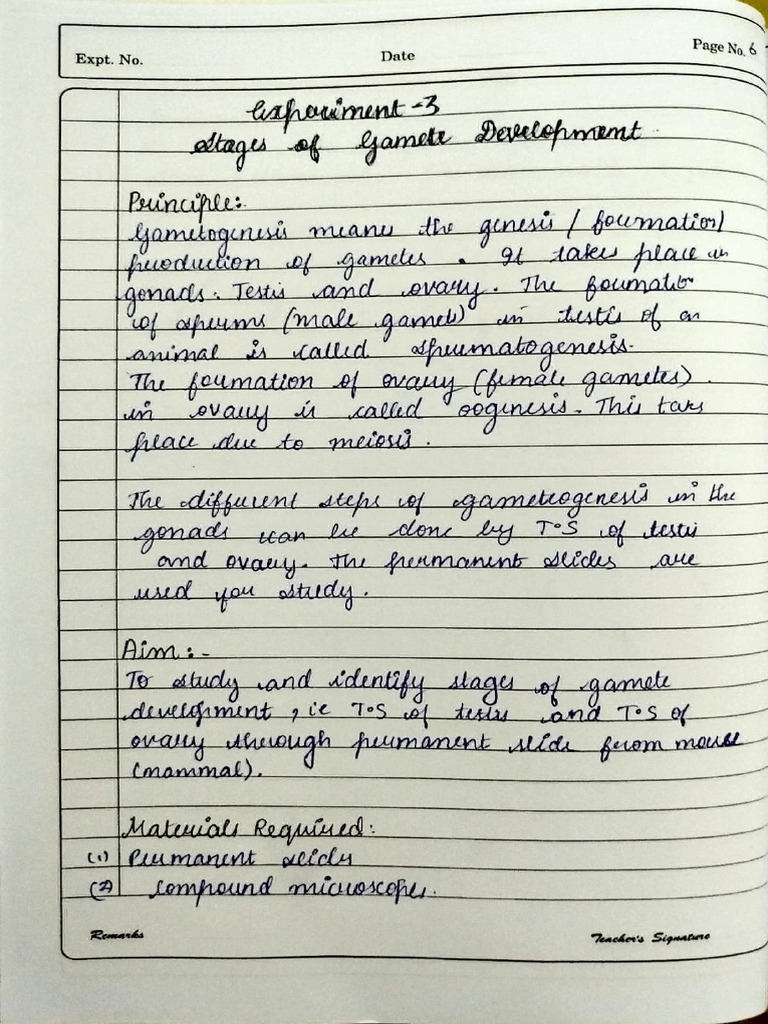 Expt. No.
Date
Page No. 6
Experiment -3
Stages of Gamete Development
Principle:
Gametogenesis means the genesis / formation/
production of gametes . It takes place in
gonads. Testis and ovary. The formatio
of sperms (male gamets) in testis of an
animal is called spermatogenesis.
The formation of ovary (female gametes).
in ovary is called oogenesis. This takes
place due to meiosis.
The different steps of gameteogenesis in the
gonads can be done by T.S of testis
and ovary. The permanent slides are
used you study.
Aim:-
To study and identify stages of gamete
development, ie T.S of testis and T.S of
ovary through permanent slide from mouse
(mammal).
Materials Required:
(1) Permanent slides
(2) Compound microscopes.
Remarks
Teacher's Signature